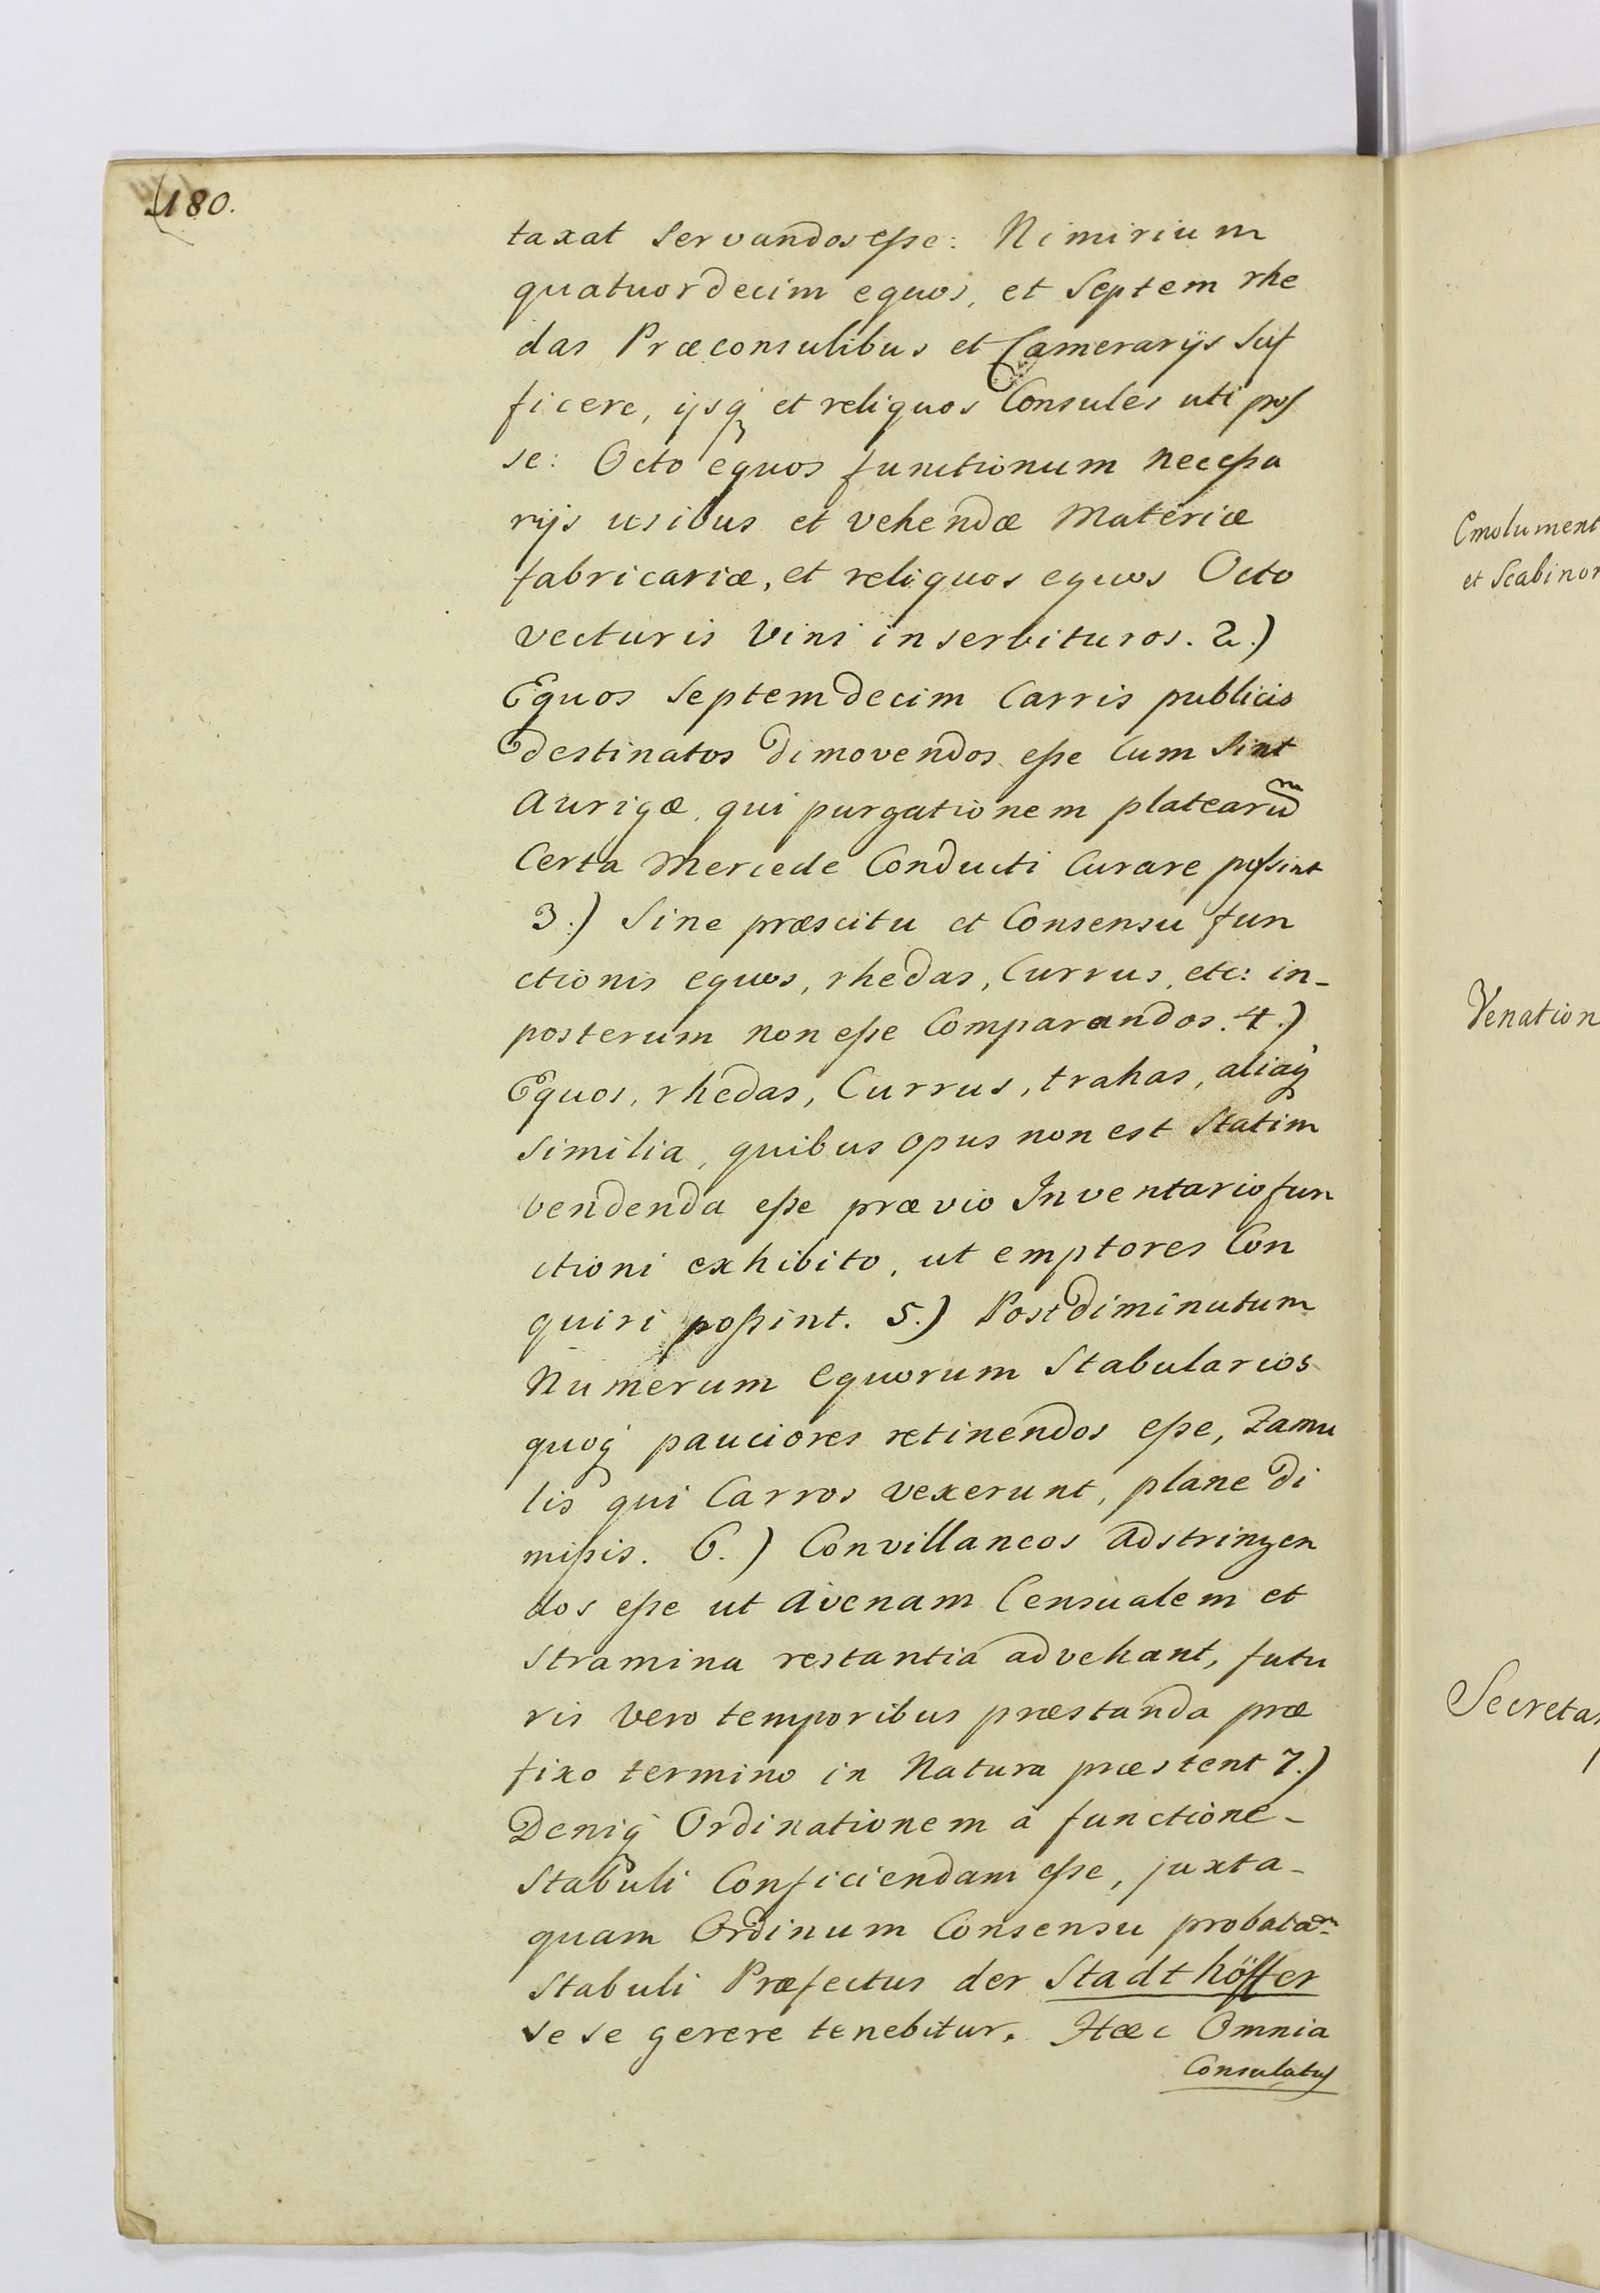 180.
taxat servandos esse: Nimirium
quatuordecim equos, et Septem rhe
das Præconsulibus et Camerarijs suf
ficere, ijsq₃ et reliquos Consules uti pos
se: Octo equos functionum necessa
rijs usibus et vehendæ Materiæ
fabricariæ, et reliquos equos Octo
vecturis Vini inservituros. 2.)
Equos Septemdecim Carris publicis
destinatos dimovendos esse Cum Sint
Aurigæ, qui purgationem platearum
Certa Mercede Conducti Curare possint
3.) Sine præscitu et Consensu fun
ctionis equos, rhedas, Currus, etc: in-
posterum non esse Comparandos. 4.)
Equos, rhedas, Currus, trahas, aliaq₃
Similia, quibus opus non est Statim
vendenda esse prævio Inventario fun
ctioni exhibito, ut emptores Con
quiri possint. 5.) Post diminutum
Numerum equorum Stabularios
quoq₃ pauciores retinendos esse, Famu
lis qui Carros vexerunt, plane di
missis. 6.) Convillaneos adstringen
dos esse ut Avenam Censualem et
Stramina restantia advehant, futu
ris vero temporibus præstanda præ
fixo termino in Natura præstent 7.)
Deniq₃ Ordinationem à functione-
Stabuli Conficiendam esse, juxta-
quam Ordinum Consensu probatam
Stabuli Præfectus der Stadthöffer
sese gerere tenebitur. Hæc Omnia
Consulatus
Emolument
et Scabinor
Venation
Secretar